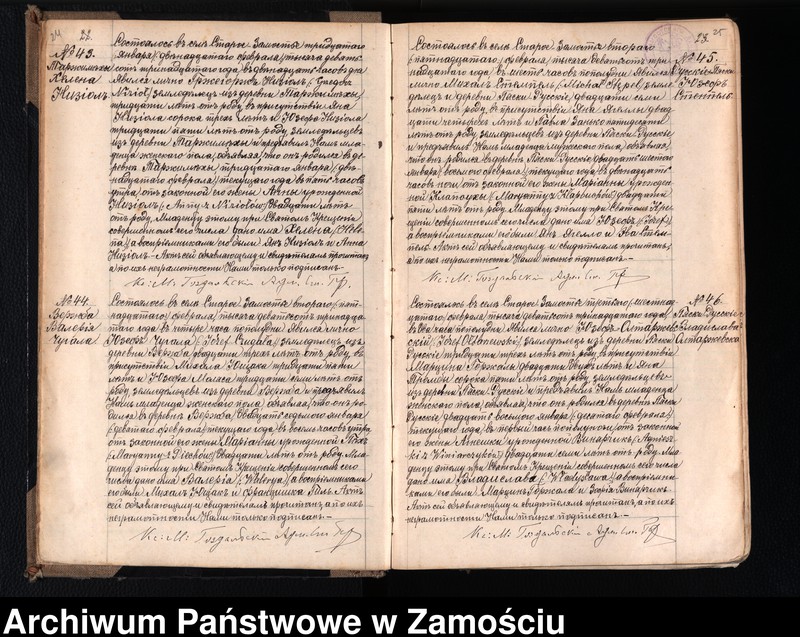 22.
№ 43.
Хелена
Низіолъ
Состоялось въ селѣ Старое Замостье тридцатаго
января /двѣнадцатаго февраля/ тысяча девять
сотъ тринадцатаго года, въ двѣнадцать часовъ дня
Явился лично
Nizioł/ земледѣлецъ изъ деревни
тридцати лѣтъ отъ роду, въ присутствіи Яна
Низіола сорока трехъ лѣтъ и Юзефа Низіола
тридцати пяти лѣтъ отъ роду, земледѣльцевъ
изъ деревни и предъявилъ Намъ мла-
денца женскаго пола, объявляя, что онъ родился въ де-
ревнѣ тридцатаго января /двѣ-
надцатаго февраля/ текущаго года въ часовъ
утра, отъ законной его жены Анны урожденной
Низіолъ /Anny z Niziołów/ двадцати лѣтъ
отъ роду. Младенцу этому при Святомъ Крещеніи
совершенномъ сего числа дано имя Хелена /Hele-
na/ а воспріемниками его были Янъ Низіолъ и Анна
Низіолъ. Актъ сей объявляющему и свидѣтелямъ прочитанъ,
а по ихъ неграмотности Нами только подписанъ.-
№ 44.
Вержба
Валерія
Цугала
Состоялось въ селѣ Старое Замостье второго /пят-
надцатаго/ февраля, тысяча девятьсотъ тринадца-
таго года, въ четыре часа пополудни Явился лично
Юзефъ Цугала /Józef Cugała/ земледѣлецъ изъ
деревни Вержба двадцати трехъ лѣтъ отъ роду, въ
присутствіи Михала тридцати пяти
лѣтъ и Юзефа тридцати семи лѣтъ отъ
роду, земледѣльцевъ изъ деревни Вержба и предъявилъ
Намъ младенца женскаго пола, объявляя, что онъ ро-
дился въ деревнѣ Вержба двадцать седьмого января
/девятаго февраля/ текущаго года, въ восемь часовъ утра,
отъ законной его жены Маріанны урожденной
/Maryanny z / двадцати лѣтъ отъ роду. Мла-
денцу этому при Святомъ Крещеніи совершенномъ сего
числа дано имя Валерія /Walerya/ а воспріемниками
его были Михалъ и Францишка Актъ
сей объявляющему и свидѣтелямъ прочитанъ, а по ихъ
неграмотности Нами только подписанъ.-
23.
№ 45.
Пяски
Юзефъ
Состоялось въ селѣ Старое Замостье второго
/пятнадцатаго/ февраля, тысяча девятьсотъ три-
надцатаго года, въ шесть часовъ пополудни Явился
лично Михалъ /Michał / земле-
дѣлецъ изъ деревни Пяски Русскіе, двадцати семи
лѣтъ отъ роду, въ присутствіи Яна двад-
цати четырехъ лѣтъ и Павла пятидесяти
лѣтъ отъ роду, земледѣльцевъ изъ деревни Пяски Русскіе
и предъявилъ Намъ младенца мужескаго пола, объявляя,
что онъ родился въ деревнѣ Пяски Русскіе двадцать шестого
января /восьмого февраля/ текущаго года, въ двѣнадцать
часовъ ночи, отъ законной его жены Маріанны урожден-
ной /Maryanny z / двадцати
пяти лѣтъ отъ роду. Младенцу этому при Святомъ Кре-
щеніи совершенномъ сего числа дано имя Юзефъ /Józef/
а воспріемниками его были Янъ и Ева
Актъ сей объявляющему и свидѣтелямъ прочитанъ,
а по ихъ неграмотности Нами только подписанъ.-
№ 46.
Пяски Русскіе
Владислава
Состоялось въ селѣ Старое Замостье третьяго /шестнад-
цатаго/ февраля, тысяча девятьсотъ тринадцатаго года,
въ два часа пополудни Явился лично Юзефъ
скій /Józef / земледѣлецъ изъ деревни Пяски
Русскіе тридцати трехъ лѣтъ отъ роду, въ присутствіи
Марцина Горжала двадцати двухъ лѣтъ и Яна
сорока пяти лѣтъ отъ роду, земледѣльцевъ
изъ деревни Пяски Русскіе и предъявилъ Намъ младенца
женскаго пола, объявляя, что онъ родился въ деревнѣ Пяски
Русскіе двадцать восьмого января /десятаго февраля/
текущаго года, въ первый часъ пополуночи, отъ законной
его жены Агнешки урожденной Винярчикъ /Agniesz-
ki z Winiarczyków/ двадцати семи лѣтъ отъ роду. Мла-
денцу этому при Святомъ Крещеніи совершенномъ сего числа
дано имя Владислава /Władysława/ а воспріемни-
ками его были Марцинъ Горжала и Зофія Винярчикъ.
Актъ сей объявляющему и свидѣтелямъ прочитанъ, а по ихъ
неграмотности Нами только подписанъ.-
Archiwum Państwowe w Zamościu